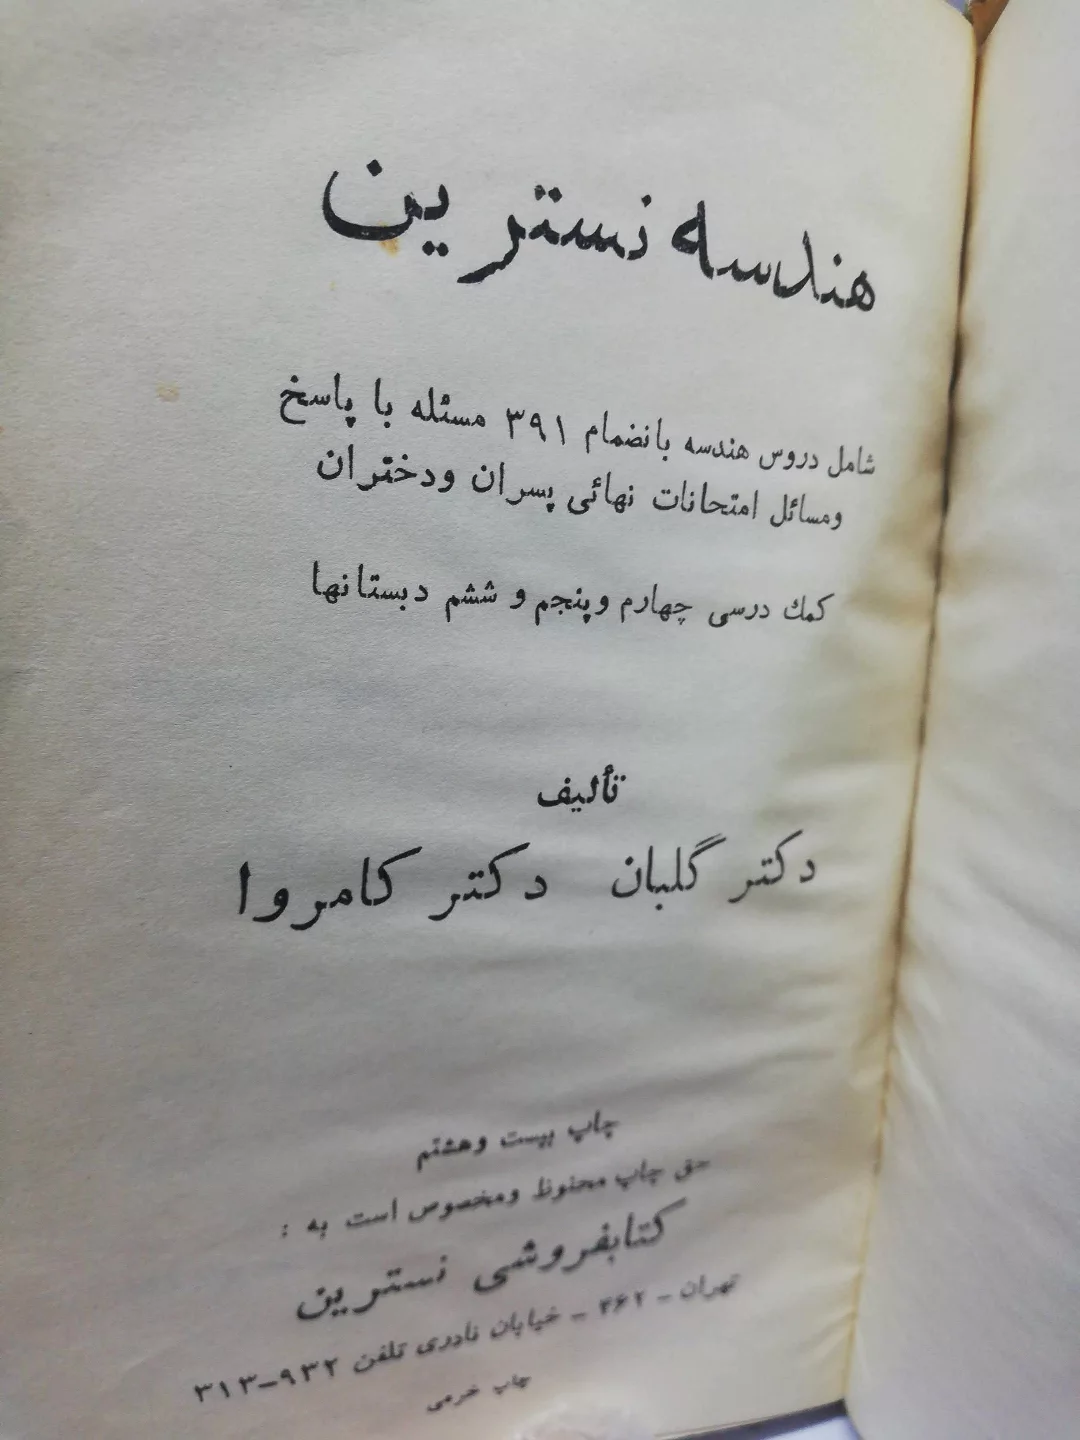 هندسه نسترین
شامل دروس هندسه بانضمام ۳۹۱ مسئله با پاسخ
ومسائل امتحانات نهائی پسران ودختران
کمك درسی چهارم وپنجم و ششم دبستانها
تألیف
دکتر گلبان دکتر کامروا
چاپ بیست وهشتم
حق چاپ محفوظ ومخصوص است به :
کتابفروشی نسترین
تهران - ۴۶۲ - خیابان نادری تلفن ۹۳۲-۳۱۳
چاپ خرمی